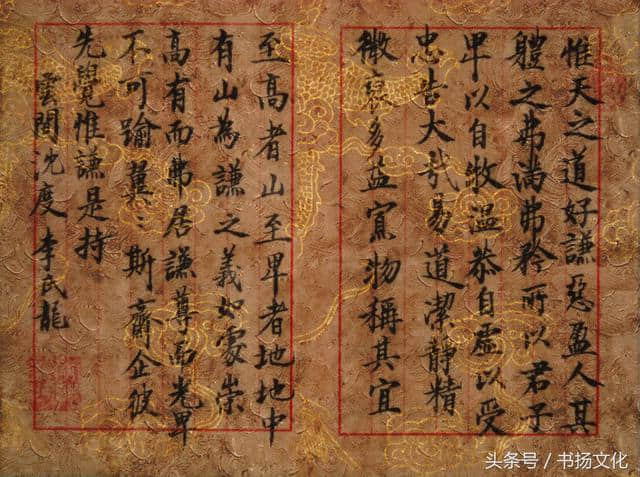 惟天之道好謙惡盈人其
體之弗滿弗矜所以君子
卑以自牧溫恭自虛以受
忠告大哉易道潔靜精
微裒多益寡物稱其宜
至高者山至卑者地地中
有山為謙之義如處崇
高有而弗居謙尊而光卑
不可踰翼〻斯齋企彼
先覺惟謙是持
雲間沈度 李民龍
头条号 / 书扬文化